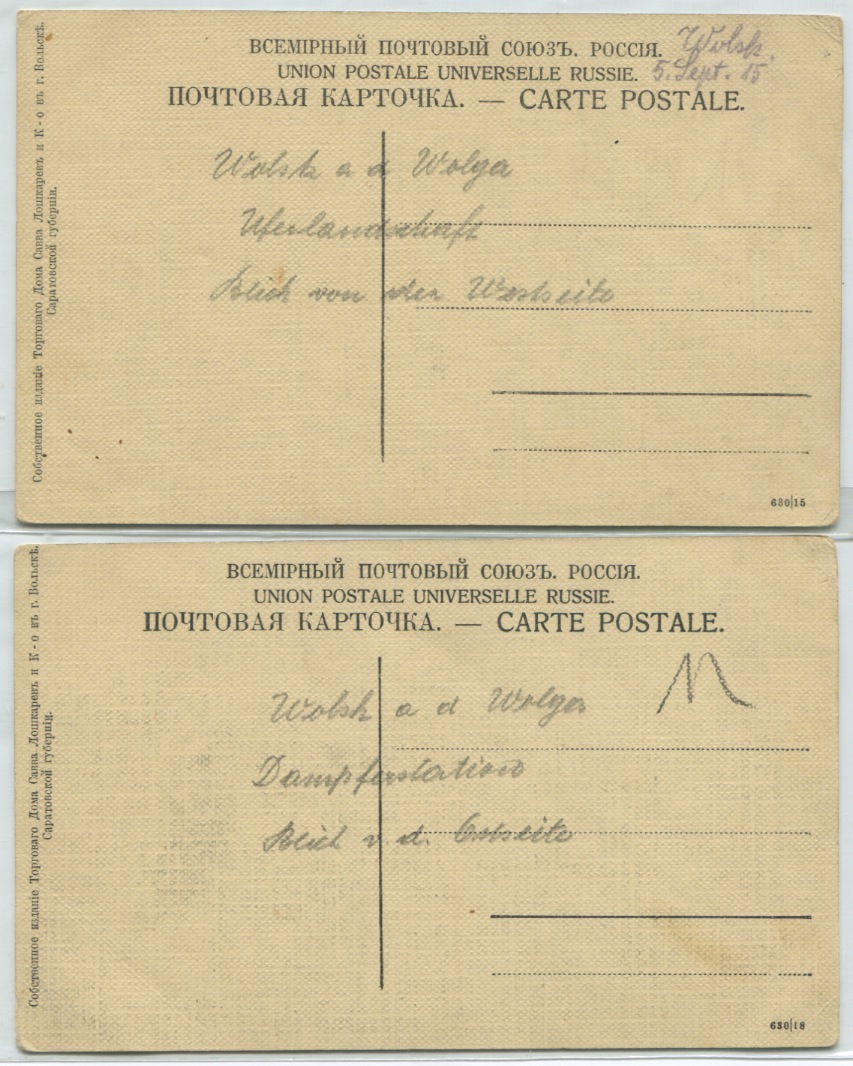 ВСЕМІРНЫЙ ПОЧТОВЫЙ СОЮЗЪ. РОССІЯ.
Wolsk.
UNION POSTALE UNIVERSELLE RUSSIE.
5. Sept. 15
ПОЧТОВАЯ КАРТОЧКА. — CARTE POSTALE.
Wolsk a d Wolga
Uferlandschaft
Blick von der Westseite
630|15
Собственное изданіе Торговаго Дома Савва Лошкаревъ и К-о въ г. Вольскѣ.
Саратовской губерніи.
ВСЕМІРНЫЙ ПОЧТОВЫЙ СОЮЗЪ. РОССІЯ.
UNION POSTALE UNIVERSELLE RUSSIE.
ПОЧТОВАЯ КАРТОЧКА. — CARTE POSTALE.
Wolsk a d Wolga
Dampferstation
Blick v. d. Ostseite
630|18
Собственное изданіе Торговаго Дома Савва Лошкаревъ и К-о въ г. Вольскѣ.
Саратовской губерніи.